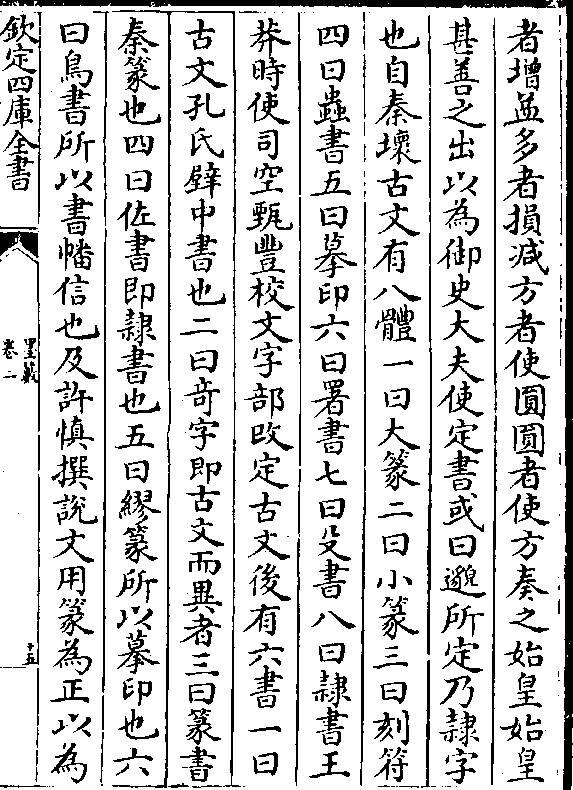 者增益多者損減方者使圓圓者使方奏之始皇始皇
甚善之出以為御史大夫使定書或曰邈所定乃隷字
也自秦壞古文有八體一曰大篆二曰小篆三曰刻符
四曰蟲書五曰摹印六曰署書七曰殳書八曰隷書王
莽時使司空甄豐校文字部改定古文後有六書一曰
古文孔氏壁中書也二曰竒字即古文而異者三曰篆書
秦篆也四曰佐書即隷書也五曰繆篆所以摹印也六
曰鳥書所以書幡信也及許慎撰說文用篆為正以為
欽定四庫全書
墨藪
卷一
十五